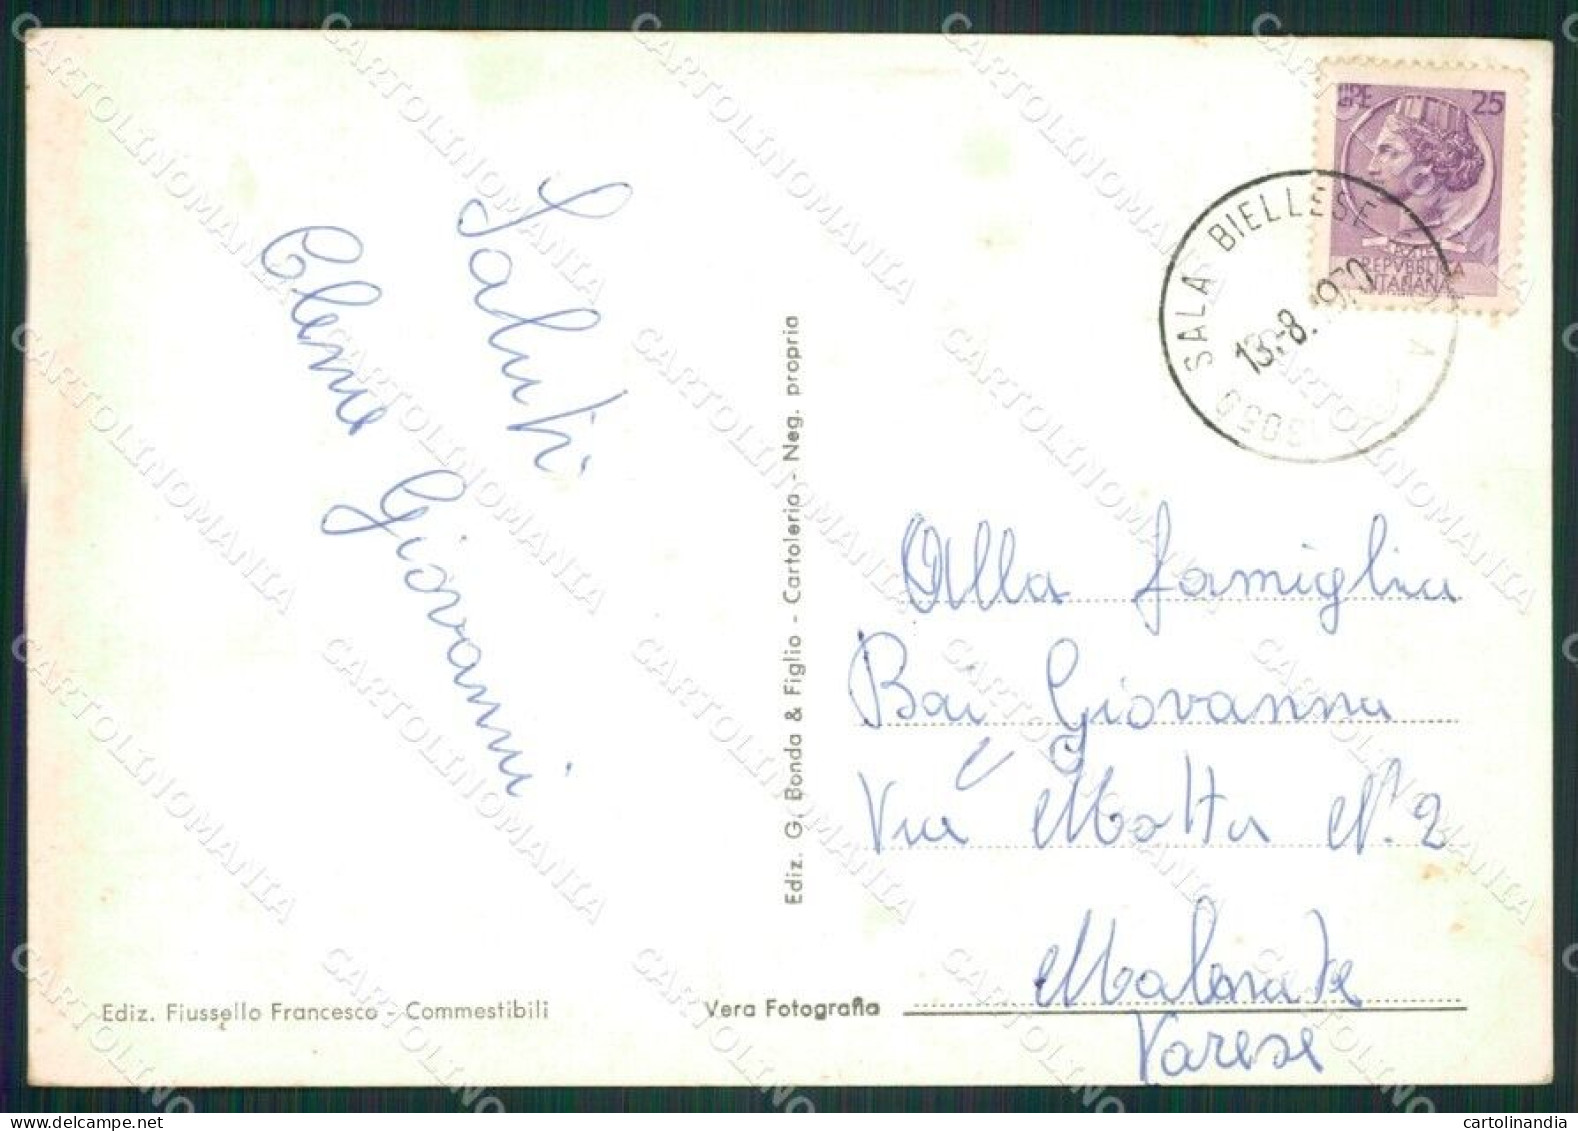 Saluti
Clemu Giovanni
LIRE 25
REPVBBLICA
ITALIANA
SALA BIELLESE
13.-8.1970
Ediz. G. Bonda & Figlio - Cartoleria - Neg. propria
Alla famiglia
Bai Giovanna
Via Motta N. 2
Malnate
Varese
Ediz. Fiussello Francesco - Commestibili
Vera Fotografia
CARTOLINOMANIA
cartolinandia